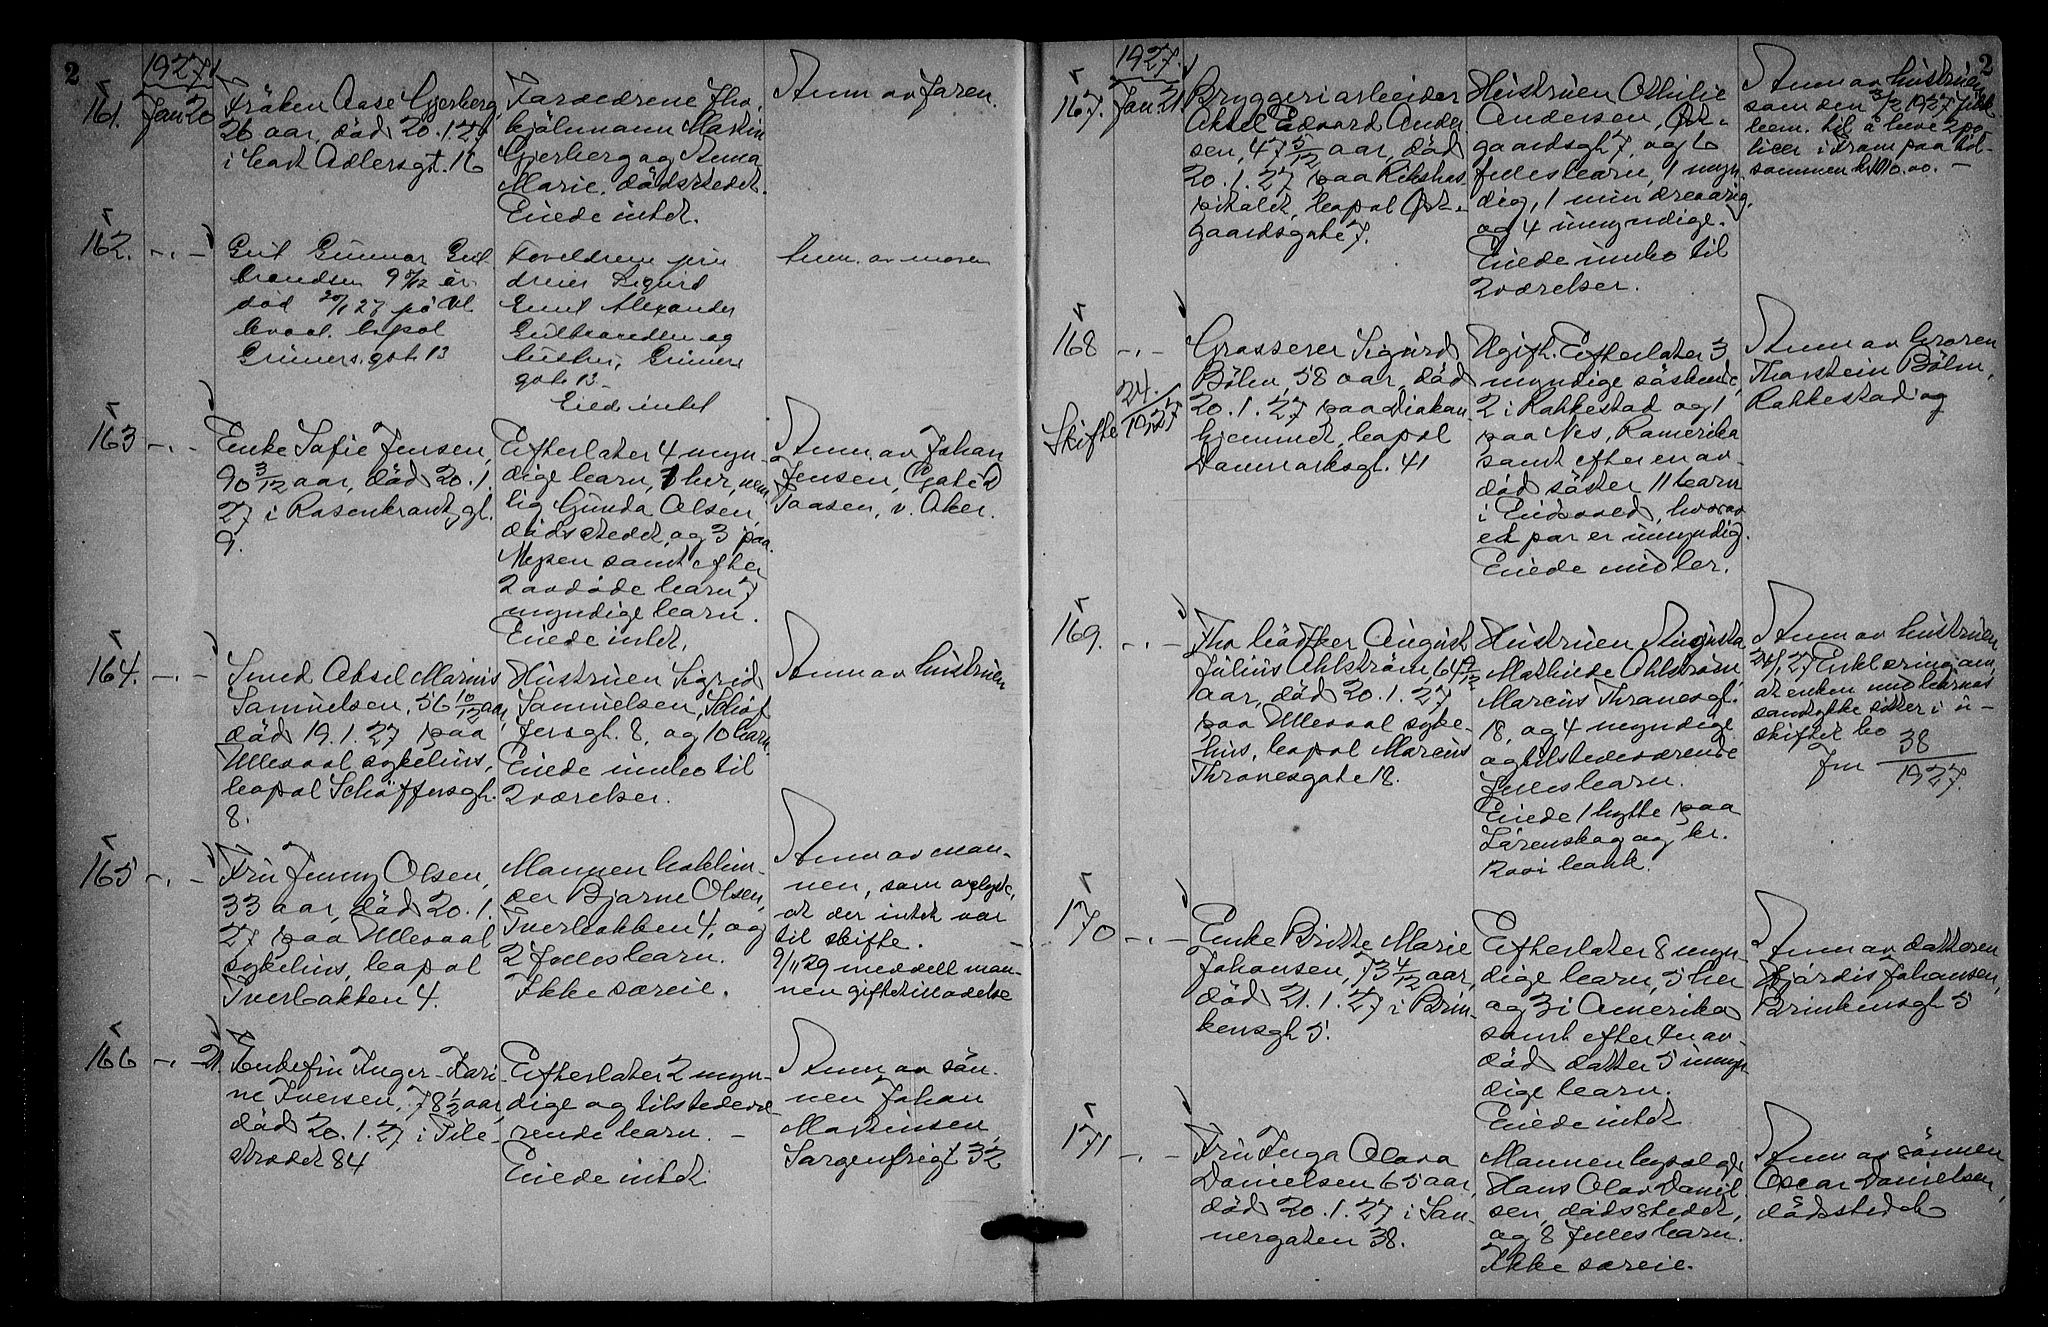 2
1927
161. Jan 20
Fröken Aase Gjerberg,
26 aar, död 20.1.27
i Cort Adlersgt. 16
Forældrene fho.
kjöbmann Martin
Gjerberg og Anna
Marie, dödsstedet.
Eiede intet.
Anm. av faren.
162. -.-
Gut Gunnar Gul
brandsen 9 år
död 20/1 27 på Ul
levaal. bopæl
Grüners. gat. 13
Foreldrene
Sigurd
Emil Alexander
Gulbrandsen og
hustru, Grüners
gate 13.-
Eied intet
Anm. av moren
163 -.-
Enke Sofie Jensen,
90 3/12 aar, död 20.1.
27 i Rosenkrantz gt.
9.
Efterlater 4 myn-
dige barn, 1 her, nem
lig Gunda Olsen,
dödsstedet, og 3 paa
Mysen samt efter
2 avdöde barn 7
myndige barn.
Eiede intet.
Anm. av Johan
Jensen,
Taasen, v. Aker.
164. -.-
Smed Aksel Marius
Samuelsen, 56 10/12 aar,
död 19.1.27 paa
Ullevaal sykehus,
bopæl Schöffersgt.
8.
Hustruen Sigrid
Samuelsen, Schöf
fersgt. 8, og 10 barn.
Eiede innbo til
2 værelser.
Anm av hustruen
165 -.-
Fru Jenny Olsen,
33 aar, död 20.1.
27 paa Ullevaal
sykehus, bopæl
Tverbakken 4.
Mannen bokbin-
der Bjarne Olsen,
Tverbakken 4, og
2 fellesbarn.
Ikke særeie.
Anm av man-
nen, som oplyste,
at der intet var
til skifte. -
9/11 29 meddelt man-
nen giftetilladelse
166 -.- 21.
Enkefru Inger-Kari-
ne Iversen, 78 1/2 aar,
död 20.1.27 i Pile-
stredet 84
Efterlater 2 myn-
dige og tilstedevæ
rende barn. -
Eiede intet
Anm av sön-
nen Johan
Martinsen,
Sorgenfrigt 32
2
1927.
167. Jan. 21
Bryggeriarbeider
Aksel Edvard Ander
sen, 47 5/12 aar, död
20.1.27 paa Rikshos
pitalet, bopæl Øst-
gaardsgate 7.
Hustruen Othilie
Andersen, Øst-
gaardsgt. 7, og 6
fellesbarn, 1 myn
dig, 1 mindreaarig,
og 4 umyndige.
Eiede innbo til
2 værelser.
Anm av hustruen
som den 3/2 1927 fikk
bem. til å heve 2 po-
licer i Fram paa til-
sammen kr.
168 -.-
Skifte 24./1927
Grosserer Sigurd
Bölen, 58 aar, död
20.1.27 paa Diakon
hjemmet, bopæl
Danmarksgt. 41
Ugift. Efterlater 3
myndige söskende,
2 i Rakkestad og 1
paa Nes, Romerike
samt efter en av-
död söster 11 barn
i Eidsvold, hvorav
et par er umyndig.
Eiede midler.
Anm av broren
Thorstein Bölen,
Rakkestad og
169. -.-
August
Julius Ahlström, 64 9/12
aar, död 20.1.27
paa Ullevaal syke-
hus, bopæl Marcus
Thranesgate 18.
Hustruen Augusta
Mathilde Ahlström,
Marcus Thranesgt.
18, og 4 myndige
og tilstedeværende
fellesbarn.
Eiede 1 hytte paa
Lörenskog og kr.
i bank.
Anm av hustruen
27 Erklæring om
at enken med barnas
samtykke sitter i u-
skiftet bo
Jnr 38/1927.
170 -.-
Enke Britte Marie
Johansen, 73 4/12 aar,
död 21.1.27 i Brin-
kensgt 5.
Efterlater 8 myn-
dige barn, 5 her
og 3 i Amerika
samt efter en av-
död datter 5 umyn
dige barn.
Eiede intet
Anm av datteren
Hjördis Johansen,
Brinkensgt 5
171 -.-
Fru Inga Olava
Danielsen 65 aar,
död 20.1.27 i San-
nergaten 38.
Mannen
Hans Olav Daniel
sen, dödsstedet,
og 8 fellesbarn.
Ikke særeie.
Anm av sönnen
Oscar Danielsen,
dödsstedet